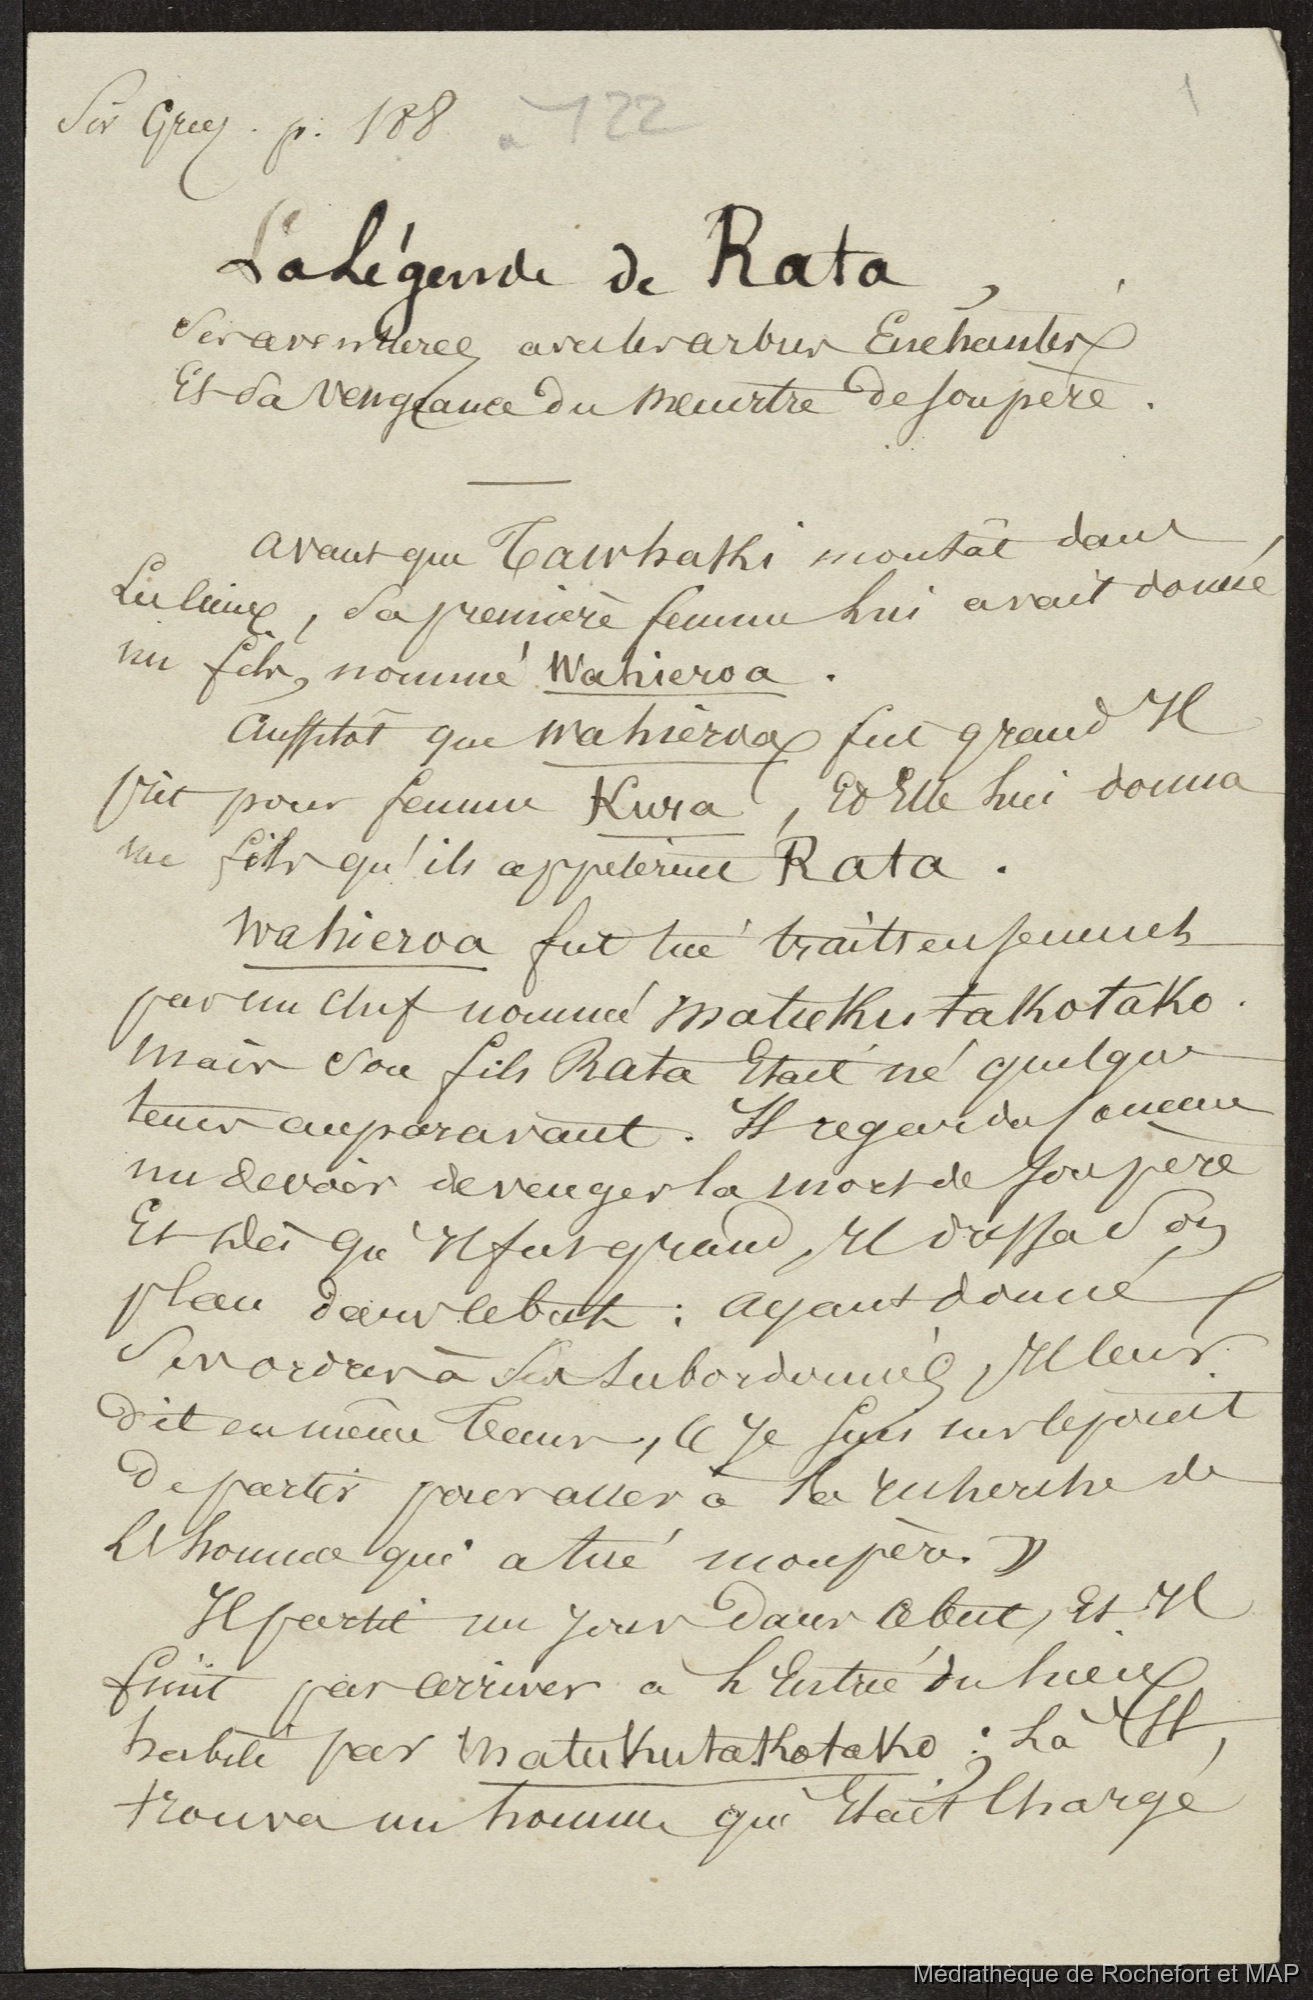 Sir Grey. p. 188 à 122
1
La Légende de Rata,
Ses aventures avec les arbres Enchantés
Et sa vengeance du meurtre de son père.
avant que Tawhaki montât dans
les cieux, sa première femme lui avait donné
un fils, nommé Wahieroa.
Aussitôt que Wahieroa fut grand Il
prit pour femme Kura, Et Elle lui donna
un fils qu'ils appelèrent Rata.
Wahieroa fut tué traitreusement
par un chef nommé matukutakotako.
mais son fils Rata Etait né quelque
tems auparavant. Il regarda comme
un devoir de venger la mort de son père
Et dès qu'Il fut grand, Il dressa son
plan dans le but : ayant donné
ses ordres à ses subordonnés, Il leur
dit en même tems, « Je suis sur le point
De partir pour aller à la recherche de
L'homme qui a tué mon père. »
Il partit un jour dans ce but, Et Il
finit par arriver à L'Entrée du lieu
habité par matukutakotako ; Là Il,
trouva un homme qui Etait Chargé
Médiathèque de Rochefort et MAP